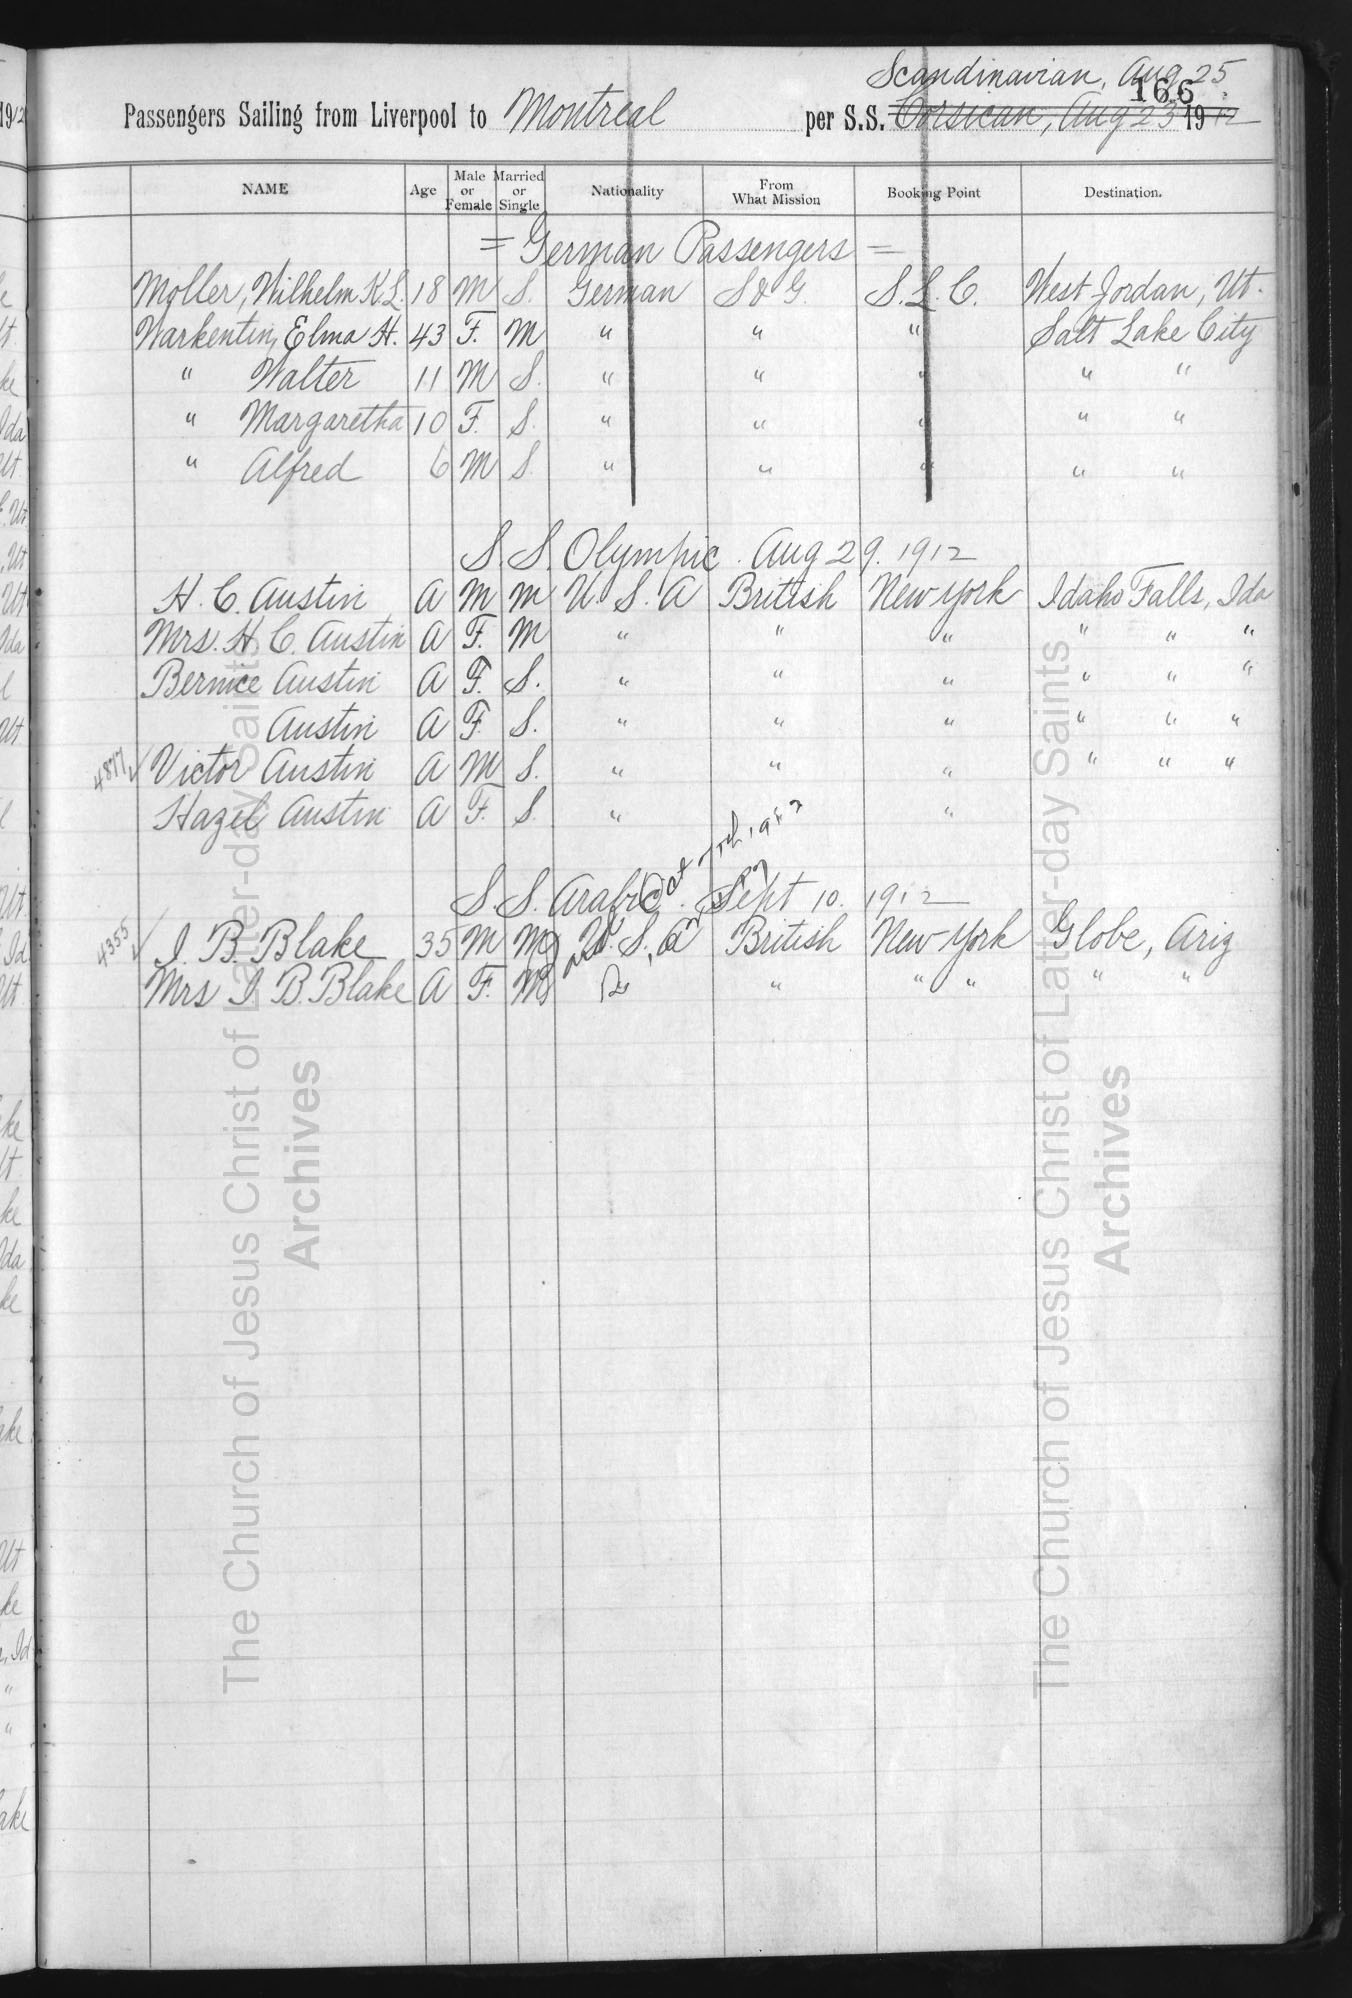 Scandinavian, Aug 25
166
Passengers Sailing from Liverpool to Montreal per S.S. Corsican, Aug 23 1912
NAME Age Male or Female Married or Single Nationality From What Mission Booking Point Destination.
= German Passengers =
Moller, Wilhelm K.L. 18 M S. German S & G. S.L.C. West Jordan, Ut.
Warkentin, Elma H. 43 F. M " " " Salt Lake City
" Walter 11 M S. " " " " "
" Margaretha 10 F. S. " " " " "
" Alfred 6 M S. " " " " "
S.S. Olympic. Aug 29. 1912
H. C. Austin A M M U.S.A British New York Idaho Falls, Ida
Mrs. H. C. Austin A F. M " " " " " "
Bernice Austin A F. S. " " " " " "
Austin A F. S. " " " " " "
4877 ✓ Victor Austin A M S. " " " " " "
Hazel Austin A F. S. " "
S.S. Arabic. Sept 10. 1912
4355 ✓ I. B. Blake 35 M M U.S.A British New York Globe, Ariz
Mrs I. B. Blake A F. M " " " " "
The Church of Jesus Christ of Latter-day Saints
Archives
The Church of Jesus Christ of Latter-day Saints
Archives